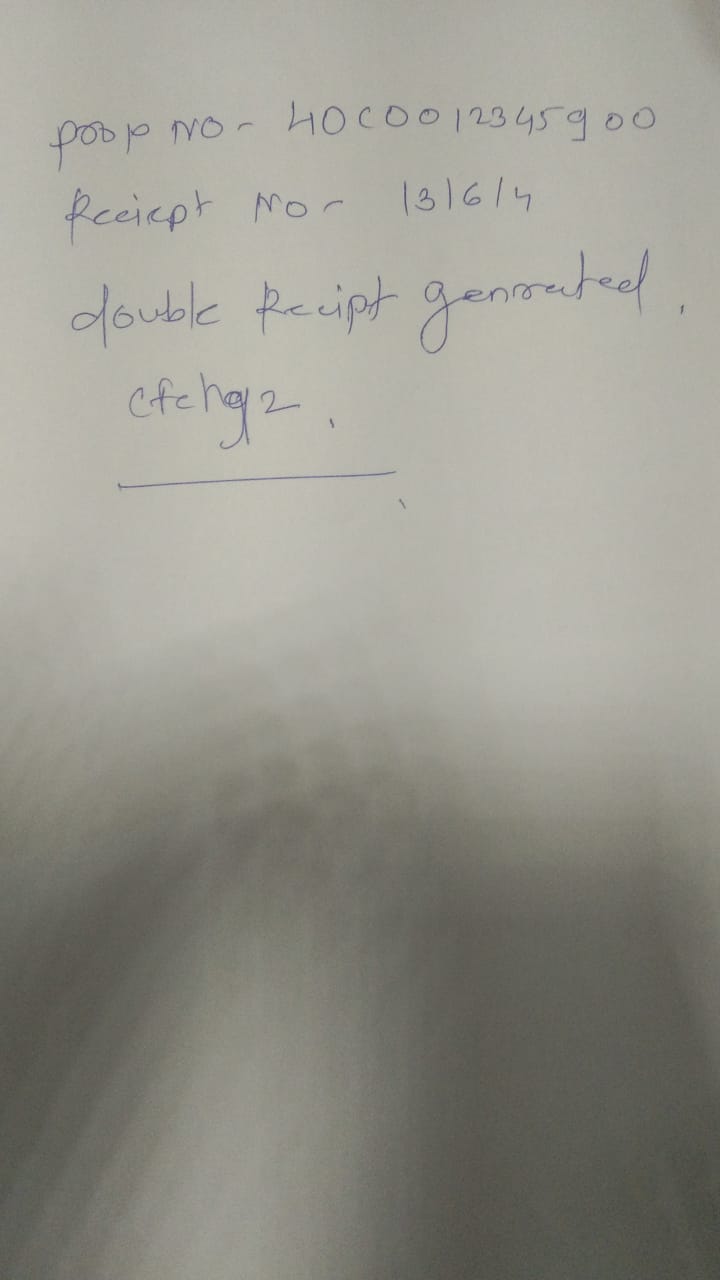 poop no - 40C0012345900
Receiept No - 131614
double Recipt genrated,
cfchg2.